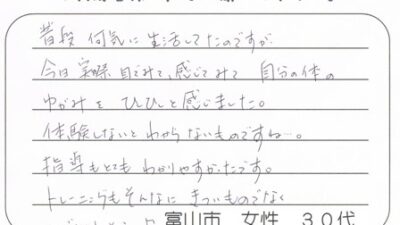 普段 何気に生活してたのですが
今日 実際 目でみて、感じてみて 自分の体の
ゆがみを ひしひしと感じました。
体験しないとわからないものですね…。
指導もとてもわかりやすかったです。
トレーニングもそんなに きついものでなく
富山市 女性 30代